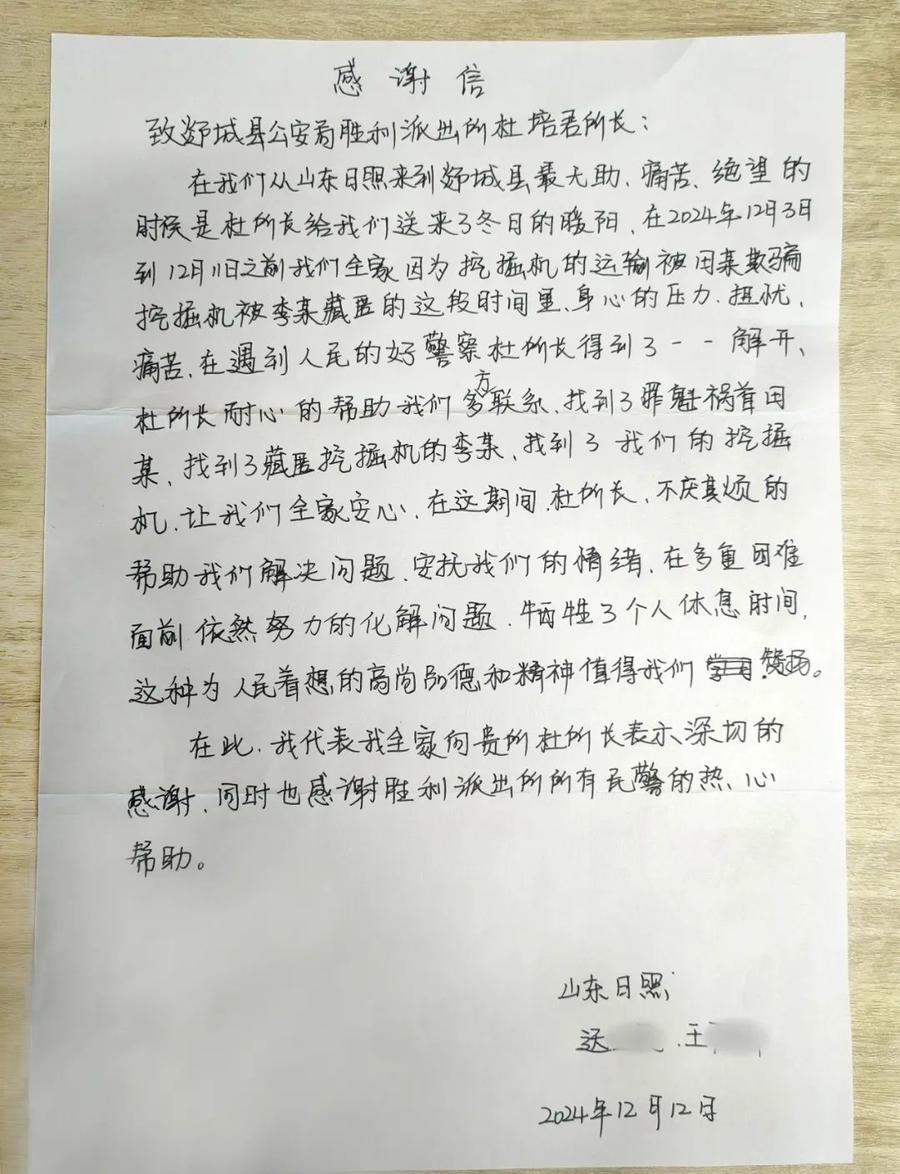 感谢信
致郯城县公安局胜利派出所杜培君所长：
在我们从山东日照来到郯城县最无助、痛苦、绝望的
时候是杜所长给我们送来了冬日的暖阳，在2024年12月3日
到12月11日之前我们全家因为挖掘机的运输被田某欺骗
挖掘机被李某藏匿的这段时间里、身心的压力、担忧、
痛苦、在遇到人民的好警察杜所长得到了一一解开、
杜所长耐心的帮助我们多方联系、找到了罪魁祸首田
某、找到了藏匿挖掘机的李某、找到了我们的挖掘
机、让我们全家安心、在这期间、杜所长、不厌其烦的
帮助我们解决问题、安抚我们的情绪、在多重困难
面前依然努力的化解问题、牺牲了个人休息时间，
这种为人民着想的高尚品德和精神值得我们赞扬。
在此、我代表我全家向贵所杜所长表示深切的
感谢、同时也感谢胜利派出所所有民警的热心
帮助。
山东日照
、王
2024年12月12日